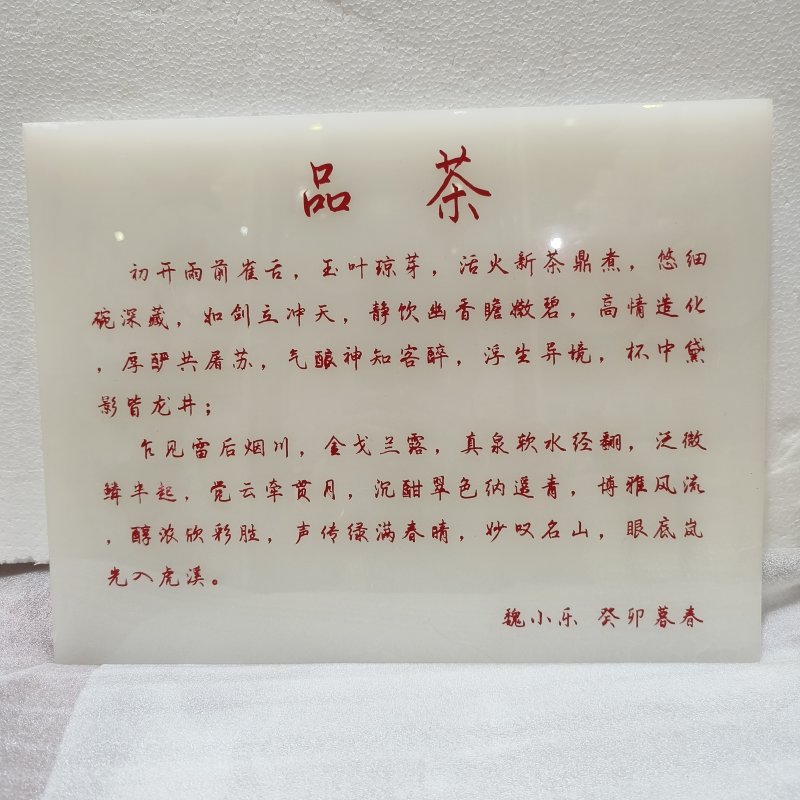 品 茶
初开雨前雀舌，玉叶琼芽，活火新茶鼎煮，悠细
碗深藏，如剑立冲天，静饮幽香瞻微碧，高情造化
，厚酽共屠苏，气酿神知客醉，浮生异境，杯中黛
影皆龙井；
乍见雷后烟川，金戈兰露，真泉软水经翻，泛微
鳞半起，觉云牵贯月，沉酣翠色纳遥青，博雅风流
，醇浓欣彩胜，声传绿满春晴，妙叹名山，眼底岚
光入虎溪。
魏小乐 癸卯暮春